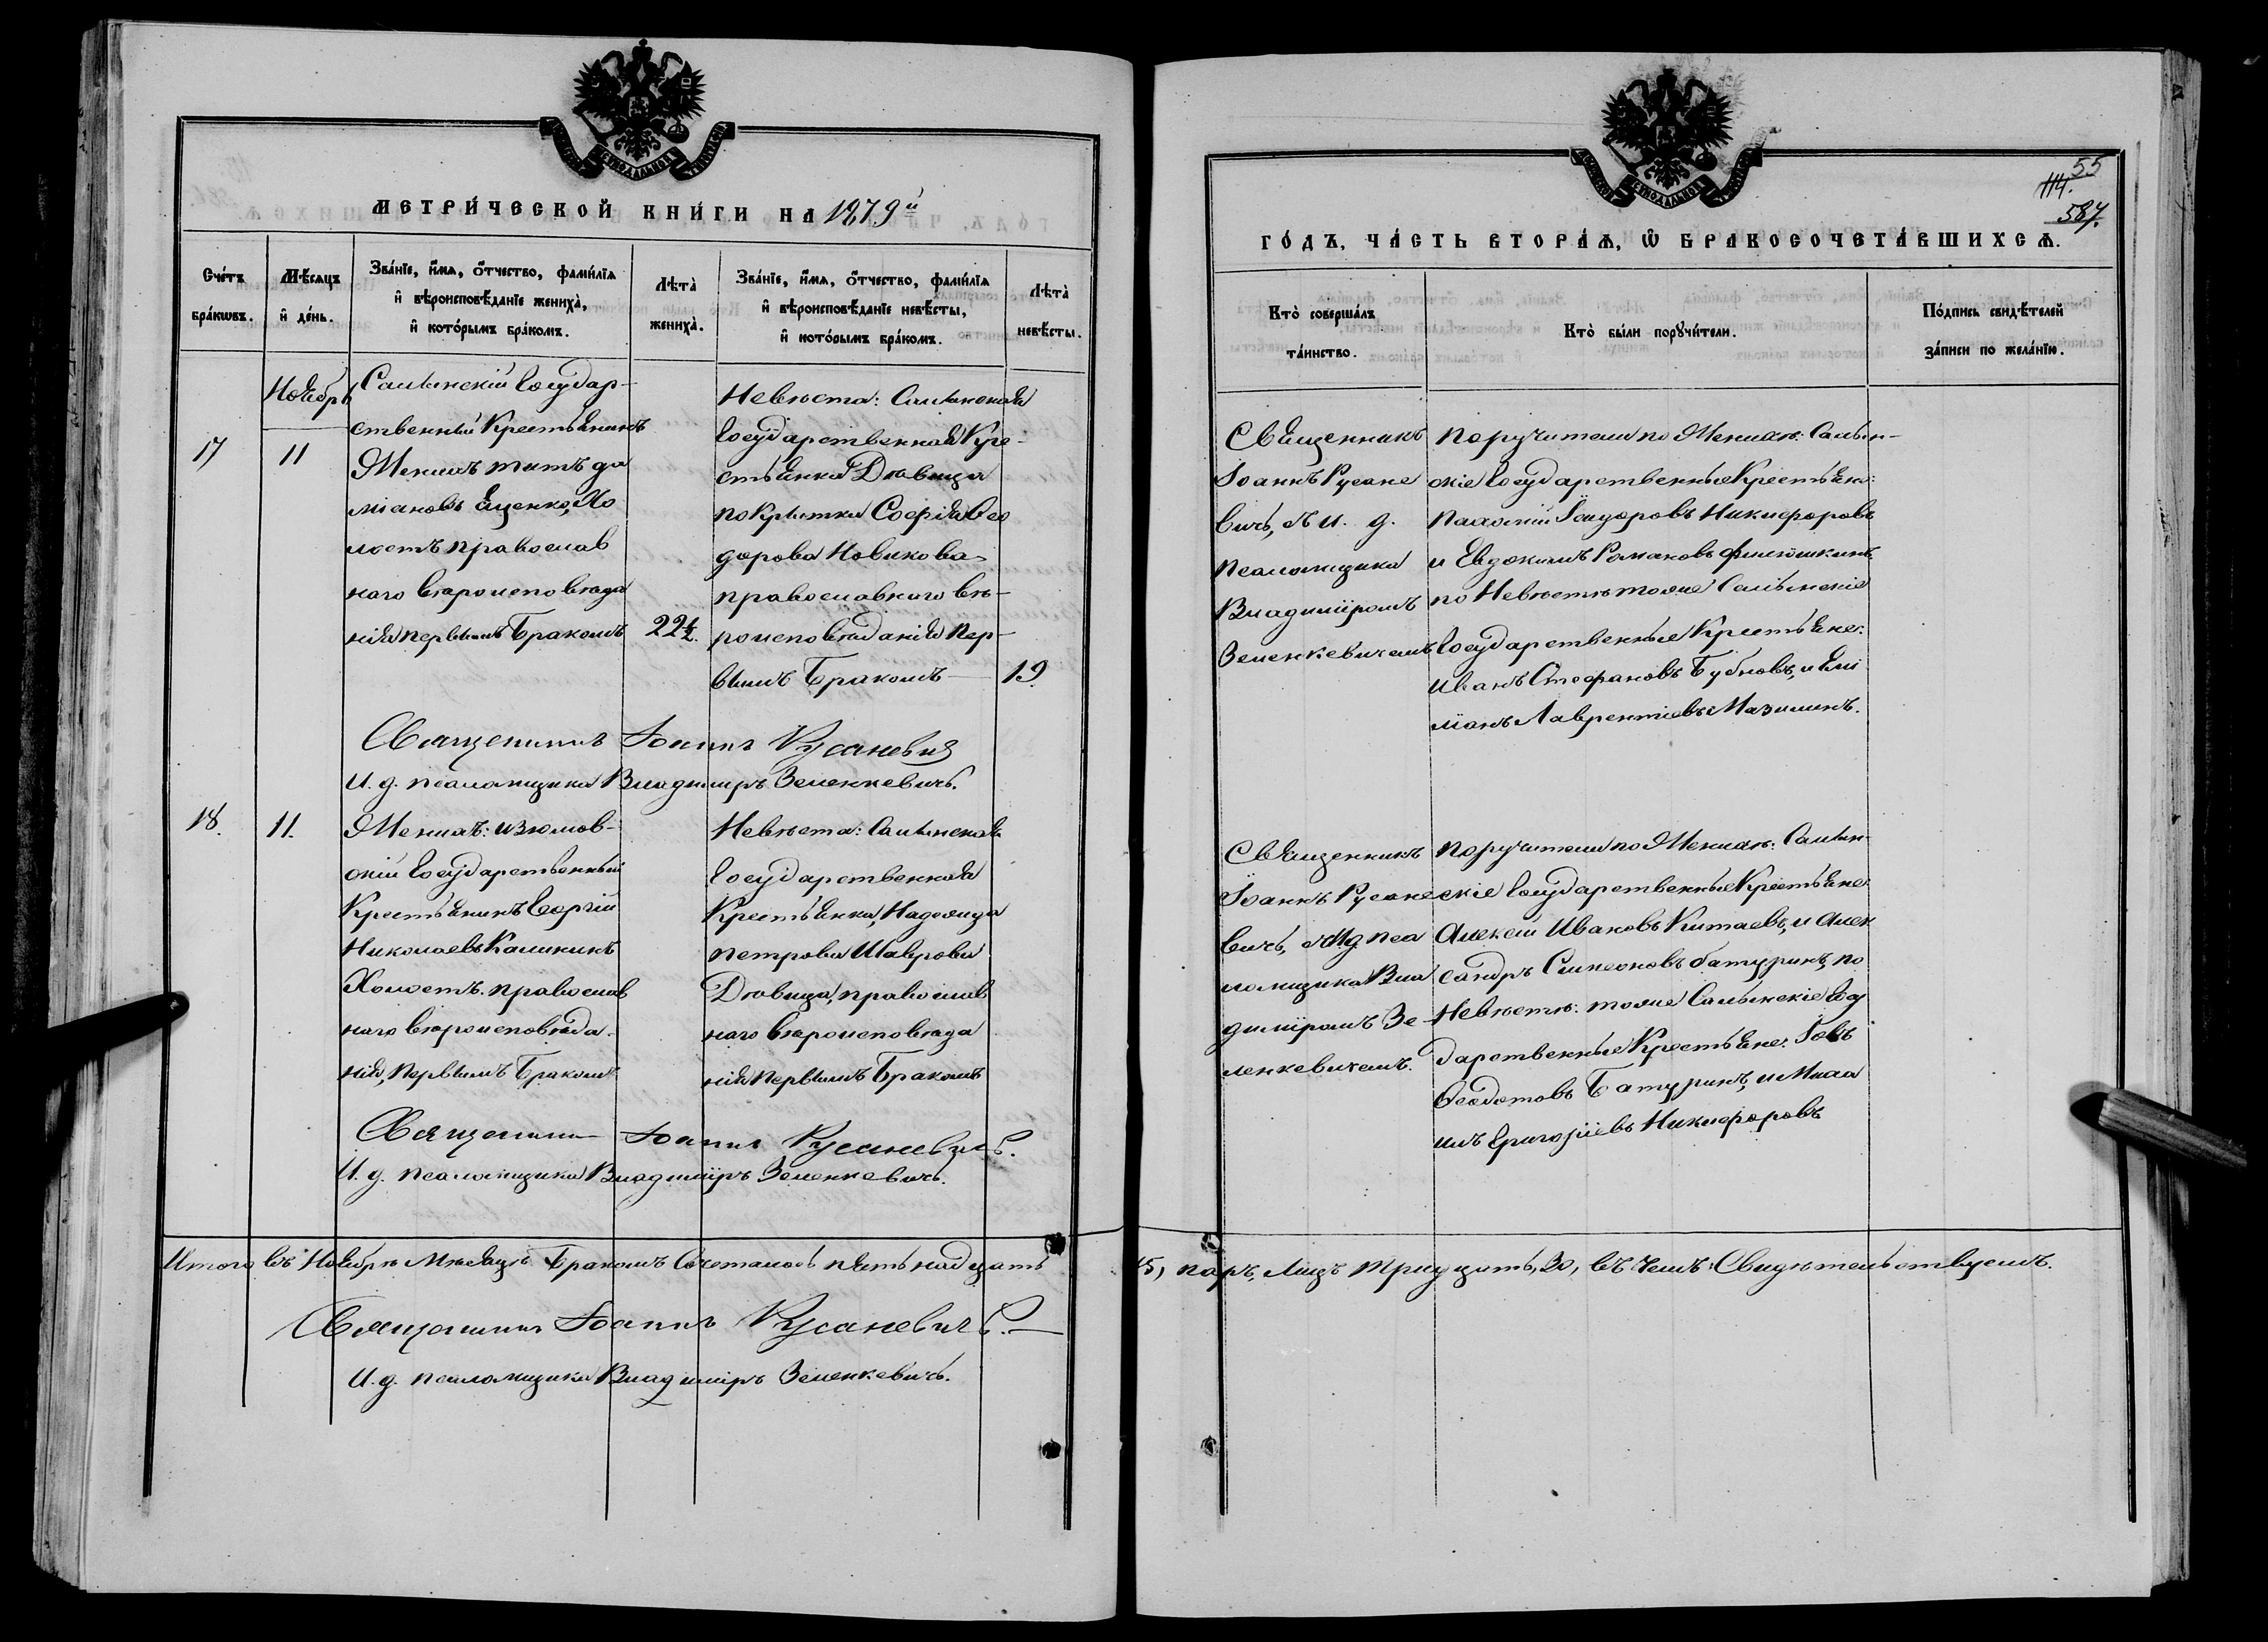 МЕТРИ́ЧЕСКОЙ КНИ́ГИ НА 1879й
Сче́тъ бра́кѡвъ.
Мѣ́сяцъ и҆ де́нь.
Зва́нїе, и҆́мѧ, ѻ҆́тчество, фами́лїѧ и҆ вѣроисповѣ́данїе жениха̀, и҆ кото́рымъ бра́комъ.
Лѣта̀ жениха̀.
Зва́нїе, и҆́мѧ, ѻ҆́тчество, фами́лїѧ и҆ вѣроисповѣ́данїе невѣ́сты, и҆ кото́рымъ бра́комъ.
Лѣта̀ невѣ́сты.
Ноябрь
17
11
Салынскій Государ-
ственный Крестьянинъ
Женихъ титъ да
міановъ Яценко, Хо
лостъ православ
наго вѣроисповѣда
нія первымъ Бракомъ
22½.
Невѣста: Салынская
Государственная Кре-
стьянка Дѣвица
покрытка Софія Ѳео
дорова Новикова
православнаго вѣ-
роисповѣданія пер-
вымъ Бракомъ
19.
Священникъ Іоаннъ Русаневичъ
И. д. псаломщика Владиміръ Зеленкевичъ.
18.
11.
Женихъ: изюмов-
скій Государственный
Крестьянинъ Георгій
Николаевъ Калинкинъ
Холостъ. православ
наго вѣроисповѣда.
нія, первымъ Бракомъ
Невѣста: Салынская
Государственная
Крестьянка, Надежда
петрова Шаврова
Дѣвица, православ
наго вѣроисповѣда
нія первымъ Бракомъ
Священникъ Іоаннъ Русаневичъ.
И. д. псаломщика Владиміръ Зеленкевичъ.
Итого въ Ноябрѣ Мѣсяцѣ Бракомъ Сочеталось пятьнадцать
Священникъ Іоаннъ Русаневичъ.
И. д. псаломщика Владиміръ Зеленкевичъ.
55
114.
587.
ГО́ДЪ, ЧА́СТЬ ВТОРА́Ѧ, Ѡ҆ БРАКОСОЧЕТА́ВШИХСѦ.
Кто̀ соверша́лъ та́инство.
Кто̀ бы́ли порꙋчи́тели.
По́дпись свидѣ́телей за́писи по жела́нїю.
Священникъ
Іоаннъ Русане
вичъ, съ и. д.
псаломщика
Владиміромъ
Зеленкевичемъ
поручители по Женихѣ: Салын-
скіе Государственные Крестьяне:
Пахомій Ісидоровъ Никифоровъ
и Евдокимъ Романовъ Филюшкинъ
по Невѣстѣ тоже Салынскіе
Государственные Крестьяне:
Иванъ Стефановъ Бубновъ, и Емі
ліанъ Лаврентіевъ Мазилинъ.
Священникъ
Іоаннъ Русане
вичъ, съ Ид пса
ломщика Вла
диміромъ Зе-
ленкевичемъ.
поручители по Женихѣ: Салын-
скіе Государственные Крестьяне
Алексій Ивановъ Китаевъ, и Алек
сандръ Симеоновъ батуринъ, по
Невѣстѣ: тоже Салынскіе Госу
дарственные Крестьяне: Іовъ
Ѳеодотовъ Батуринъ, и Миха
илъ Григоріевъ Никифоровъ
15, паръ, Лицъ тридцать, 30, въ чемъ: Свидѣтельствуемъ.